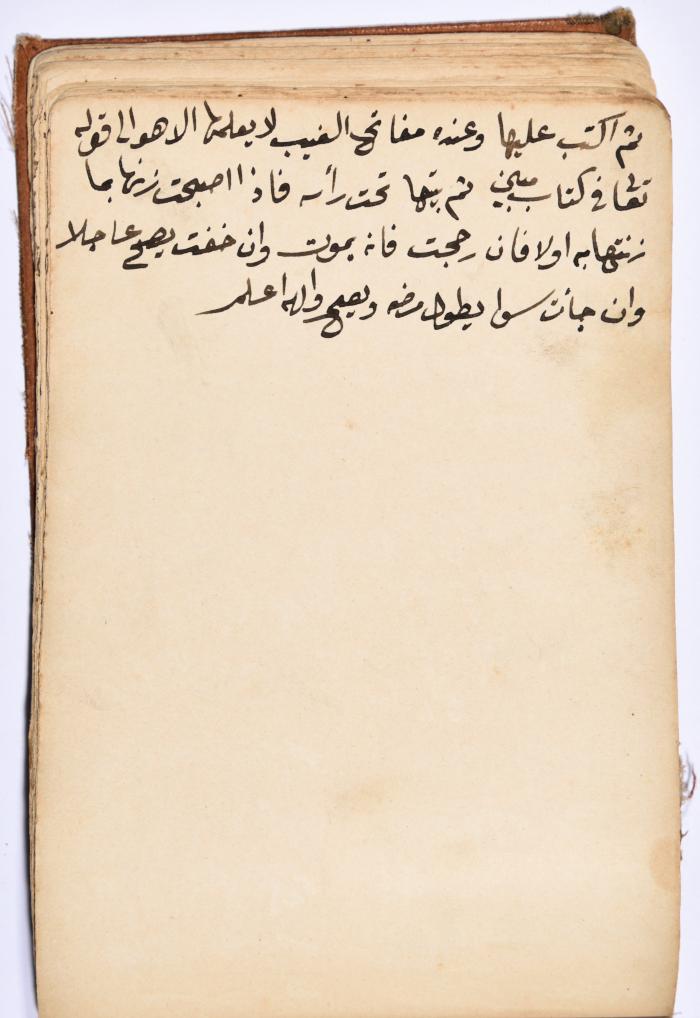 ثم اكتب عليها وعنده مفاتح الغيب لا يعلمها الا هو الى قوله
تعالى في كتاب مبين ثم بيتها تحت رأسه فاذا اصبحت زنها بما
زنتها به اولا فان رجحت فانه يموت وان خفت يصح عاجلا
وان جأت سوا يطول مرضه ويصح والله اعلم